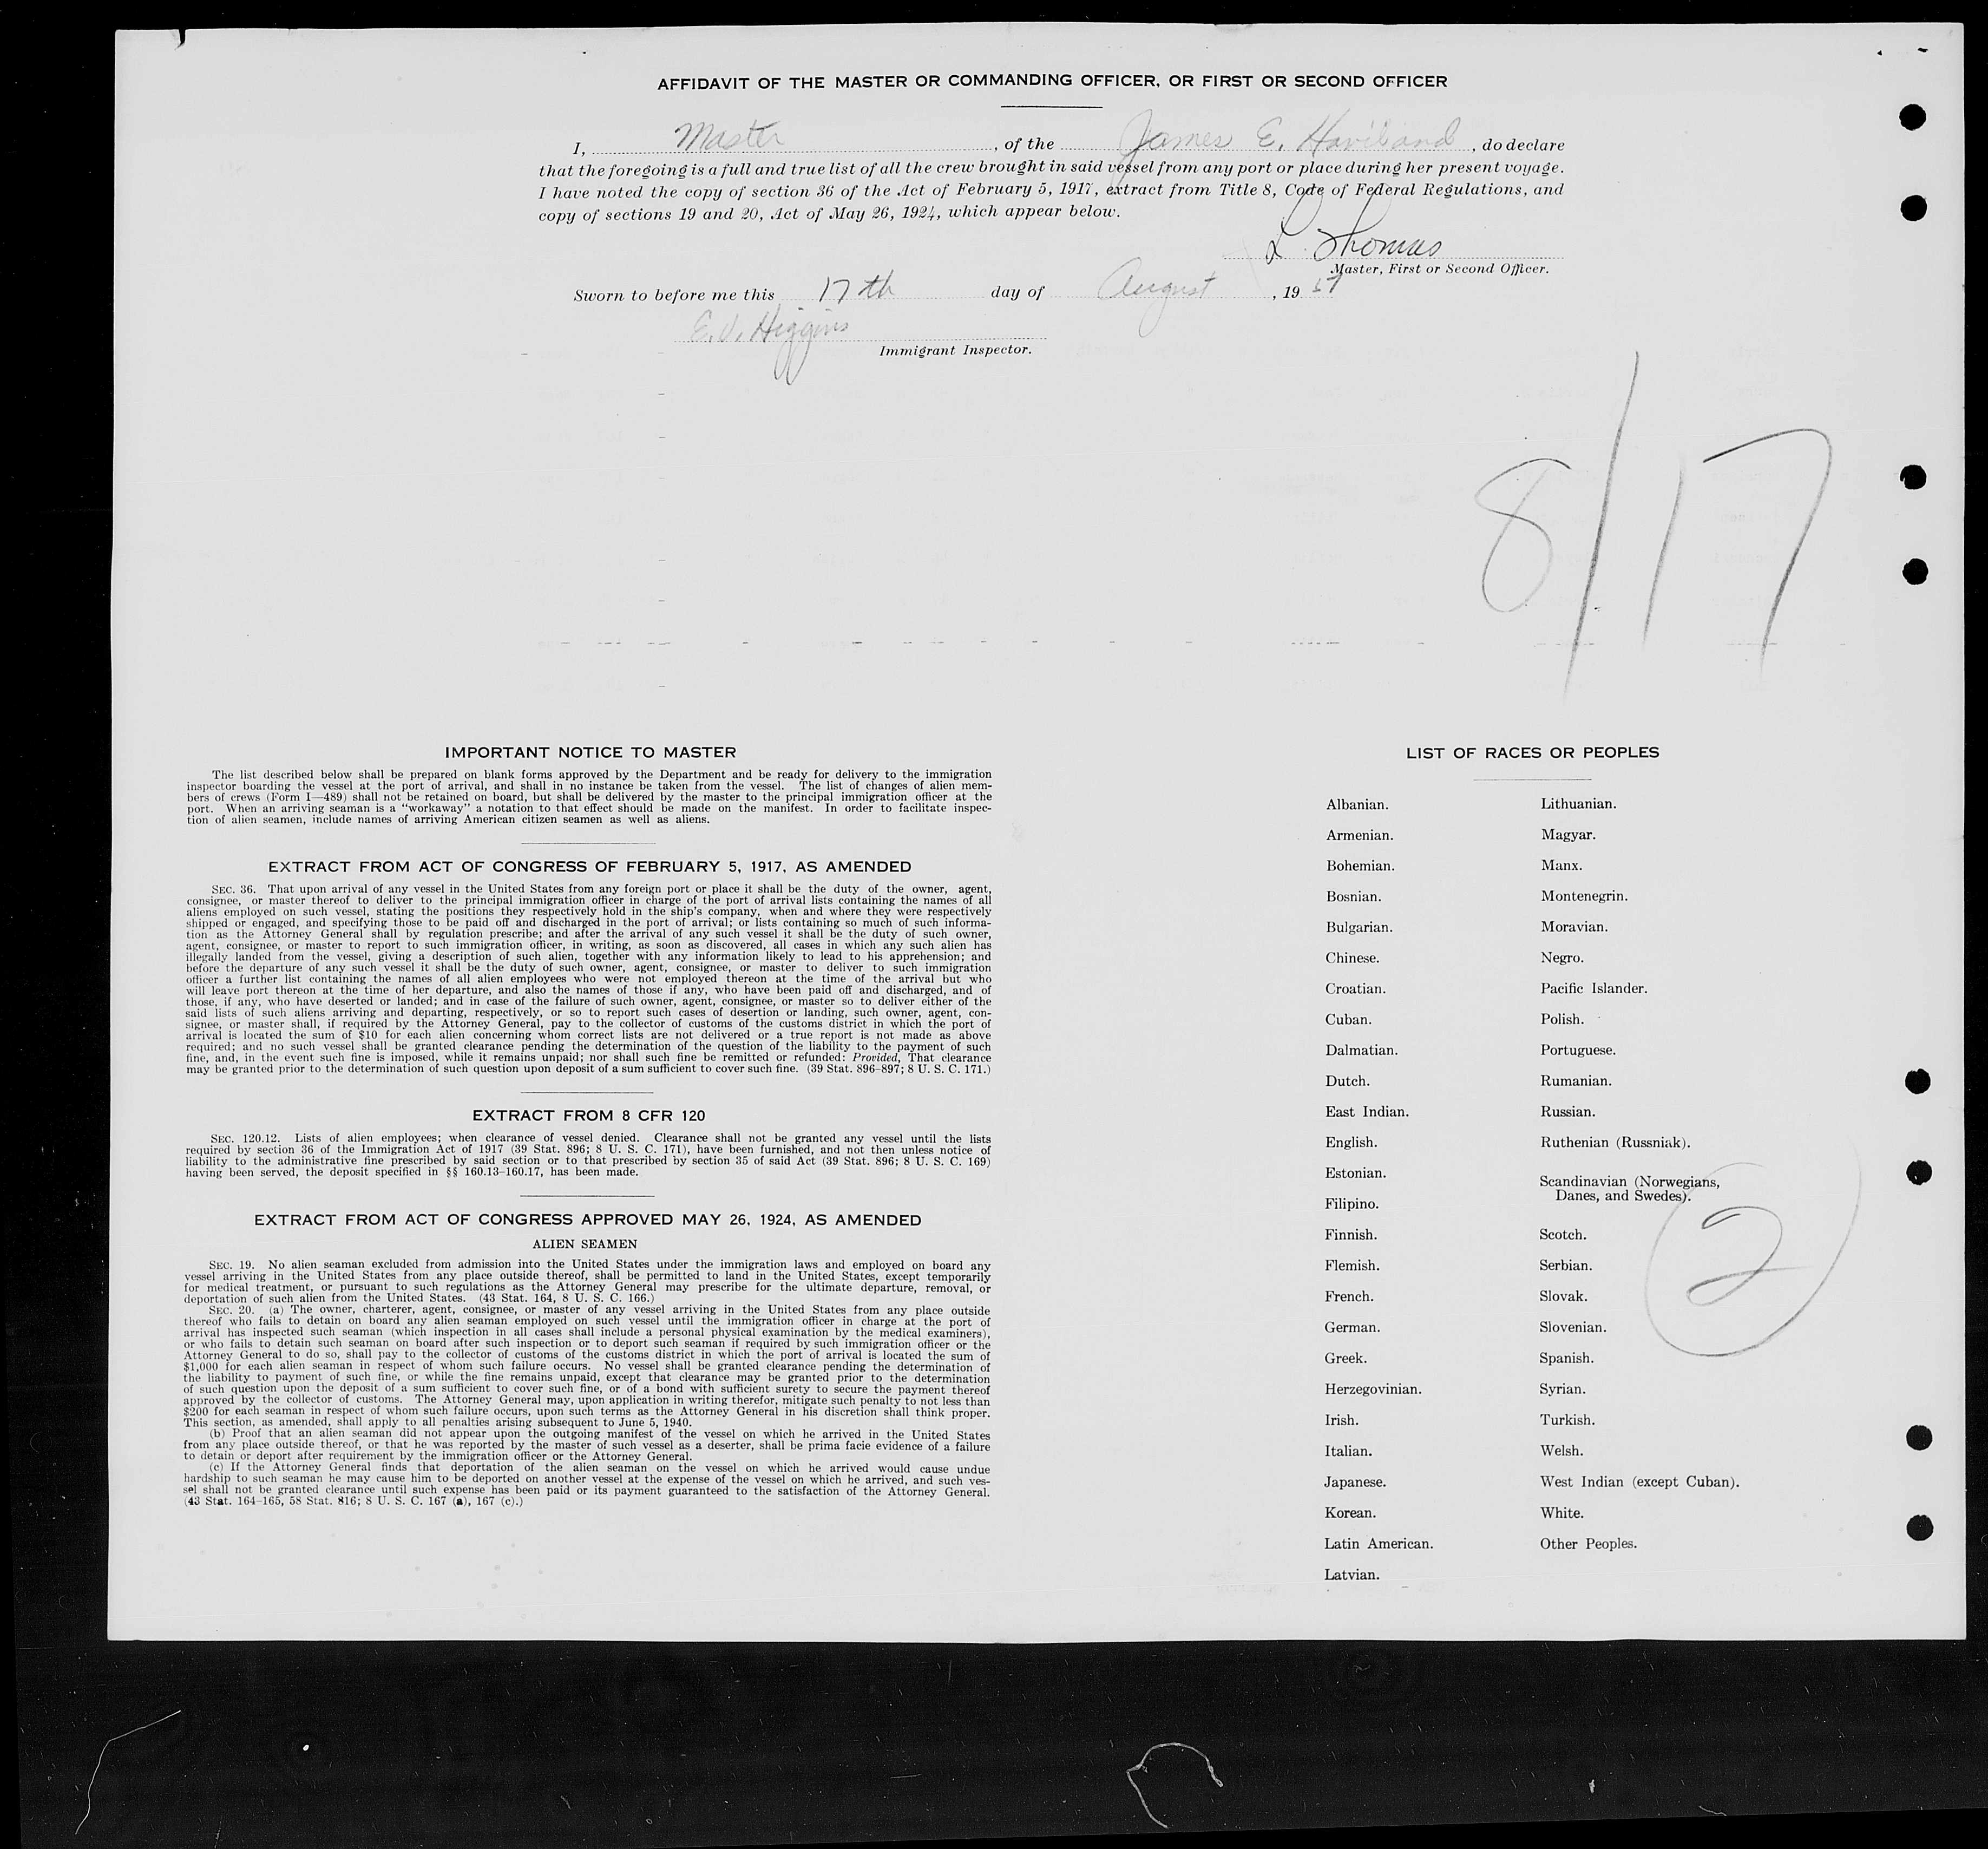 AFFIDAVIT OF THE MASTER OR COMMANDING OFFICER, OR FIRST OR SECOND OFFICER
I, Master, of the James E. Haviland, do declare
that the foregoing is a full and true list of all the crew brought in said vessel from any port or place during her present voyage.
I have noted the copy of section 36 of the Act of February 5, 1917, extract from Title 8, Code of Federal Regulations, and
copy of sections 19 and 20, Act of May 26, 1924, which appear below.
L Thomas
Master, First or Second Officer.
Sworn to before me this 17th day of August, 19
Higgins
Immigrant Inspector.
8/17
IMPORTANT NOTICE TO MASTER
The list described below shall be prepared on blank forms approved by the Department and be ready for delivery to the immigration
inspector boarding the vessel at the port of arrival, and shall in no instance be taken from the vessel. The list of changes of alien mem-
bers of crews (Form I—489) shall not be retained on board, but shall be delivered by the master to the principal immigration officer at the
port. When an arriving seaman is a "workaway" a notation to that effect should be made on the manifest. In order to facilitate inspec-
tion of alien seamen, include names of arriving American citizen seamen as well as aliens.
EXTRACT FROM ACT OF CONGRESS OF FEBRUARY 5, 1917, AS AMENDED
SEC. 36. That upon arrival of any vessel in the United States from any foreign port or place it shall be the duty of the owner, agent,
consignee, or master thereof to deliver to the principal immigration officer in charge of the port of arrival lists containing the names of all
aliens employed on such vessel, stating the positions they respectively hold in the ship's company, when and where they were respectively
shipped or engaged, and specifying those to be paid off and discharged in the port of arrival; or lists containing so much of such informa-
tion as the Attorney General shall by regulation prescribe; and after the arrival of any such vessel it shall be the duty of such owner,
agent, consignee, or master to report to such immigration officer, in writing, as soon as discovered, all cases in which any such alien has
illegally landed from the vessel, giving a description of such alien, together with any information likely to lead to his apprehension; and
before the departure of any such vessel it shall be the duty of such owner, agent, consignee, or master to deliver to such immigration
officer a further list containing the names of all alien employees who were not employed thereon at the time of the arrival but who
will leave port thereon at the time of her departure, and also the names of those if any, who have been paid off and discharged, and of
those, if any, who have deserted or landed; and in case of the failure of such owner, agent, consignee, or master so to deliver either of the
said lists of such aliens arriving and departing, respectively, or so to report such cases of desertion or landing, such owner, agent, con-
signee, or master shall, if required by the Attorney General, pay to the collector of customs of the customs district in which the port of
arrival is located the sum of $10 for each alien concerning whom correct lists are not delivered or a true report is not made as above
required; and no such vessel shall be granted clearance pending the determination of the question of the liability to the payment of such
fine, and, in the event such fine is imposed, while it remains unpaid; nor shall such fine be remitted or refunded: Provided, That clearance
may be granted prior to the determination of such question upon deposit of a sum sufficient to cover such fine. (39 Stat. 896-897; 8 U. S. C. 171.)
EXTRACT FROM 8 CFR 120
SEC. 120.12. Lists of alien employees; when clearance of vessel denied. Clearance shall not be granted any vessel until the lists
required by section 36 of the Immigration Act of 1917 (39 Stat. 896; 8 U. S. C. 171), have been furnished, and not then unless notice of
liability to the administrative fine prescribed by said section or to that prescribed by section 35 of said Act (39 Stat. 896; 8 U. S. C. 169)
having been served, the deposit specified in §§ 160.13-160.17, has been made.
EXTRACT FROM ACT OF CONGRESS APPROVED MAY 26, 1924, AS AMENDED
ALIEN SEAMEN
SEC. 19. No alien seaman excluded from admission into the United States under the immigration laws and employed on board any
vessel arriving in the United States from any place outside thereof, shall be permitted to land in the United States, except temporarily
for medical treatment, or pursuant to such regulations as the Attorney General may prescribe for the ultimate departure, removal, or
deportation of such alien from the United States. (43 Stat. 164, 8 U. S. C. 166.)
SEC. 20. (a) The owner, charterer, agent, consignee, or master of any vessel arriving in the United States from any place outside
thereof who fails to detain on board any alien seaman employed on such vessel until the immigration officer in charge at the port of
arrival has inspected such seaman (which inspection in all cases shall include a personal physical examination by the medical examiners),
or who fails to detain such seaman on board after such inspection or to deport such seaman if required by such immigration officer or the
Attorney General to do so, shall pay to the collector of customs of the customs district in which the port of arrival is located the sum of
$1,000 for each alien seaman in respect of whom such failure occurs. No vessel shall be granted clearance pending the determination of
the liability to payment of such fine, or while the fine remains unpaid, except that clearance may be granted prior to the determination
of such question upon the deposit of a sum sufficient to cover such fine, or of a bond with sufficient surety to secure the payment thereof
approved by the collector of customs. The Attorney General may, upon application in writing therefor, mitigate such penalty to not less than
$200 for each seaman in respect of whom such failure occurs, upon such terms as the Attorney General in his discretion shall think proper.
This section, as amended, shall apply to all penalties arising subsequent to June 5, 1940.
(b) Proof that an alien seaman did not appear upon the outgoing manifest of the vessel on which he arrived in the United States
from any place outside thereof, or that he was reported by the master of such vessel as a deserter, shall be prima facie evidence of a failure
to detain or deport after requirement by the immigration officer or the Attorney General.
(c) If the Attorney General finds that deportation of the alien seaman on the vessel on which he arrived would cause undue
hardship to such seaman he may cause him to be deported on another vessel at the expense of the vessel on which he arrived, and such ves-
sel shall not be granted clearance until such expense has been paid or its payment guaranteed to the satisfaction of the Attorney General.
(43 Stat. 164-165, 58 Stat. 816; 8 U. S. C. 167 (a), 167 (c).)
LIST OF RACES OR PEOPLES
Albanian.
Armenian.
Bohemian.
Bosnian.
Bulgarian.
Chinese.
Croatian.
Cuban.
Dalmatian.
Dutch.
East Indian.
English.
Estonian.
Filipino.
Finnish.
Flemish.
French.
German.
Greek.
Herzegovinian.
Irish.
Italian.
Japanese.
Korean.
Latin American.
Latvian.
Lithuanian.
Magyar.
Manx.
Montenegrin.
Moravian.
Negro.
Pacific Islander.
Polish.
Portuguese.
Rumanian.
Russian.
Ruthenian (Russniak).
Scandinavian (Norwegians,
Danes, and Swedes).
Scotch.
Serbian.
Slovak.
Slovenian.
Spanish.
Syrian.
Turkish.
Welsh.
West Indian (except Cuban).
White.
Other Peoples.
2